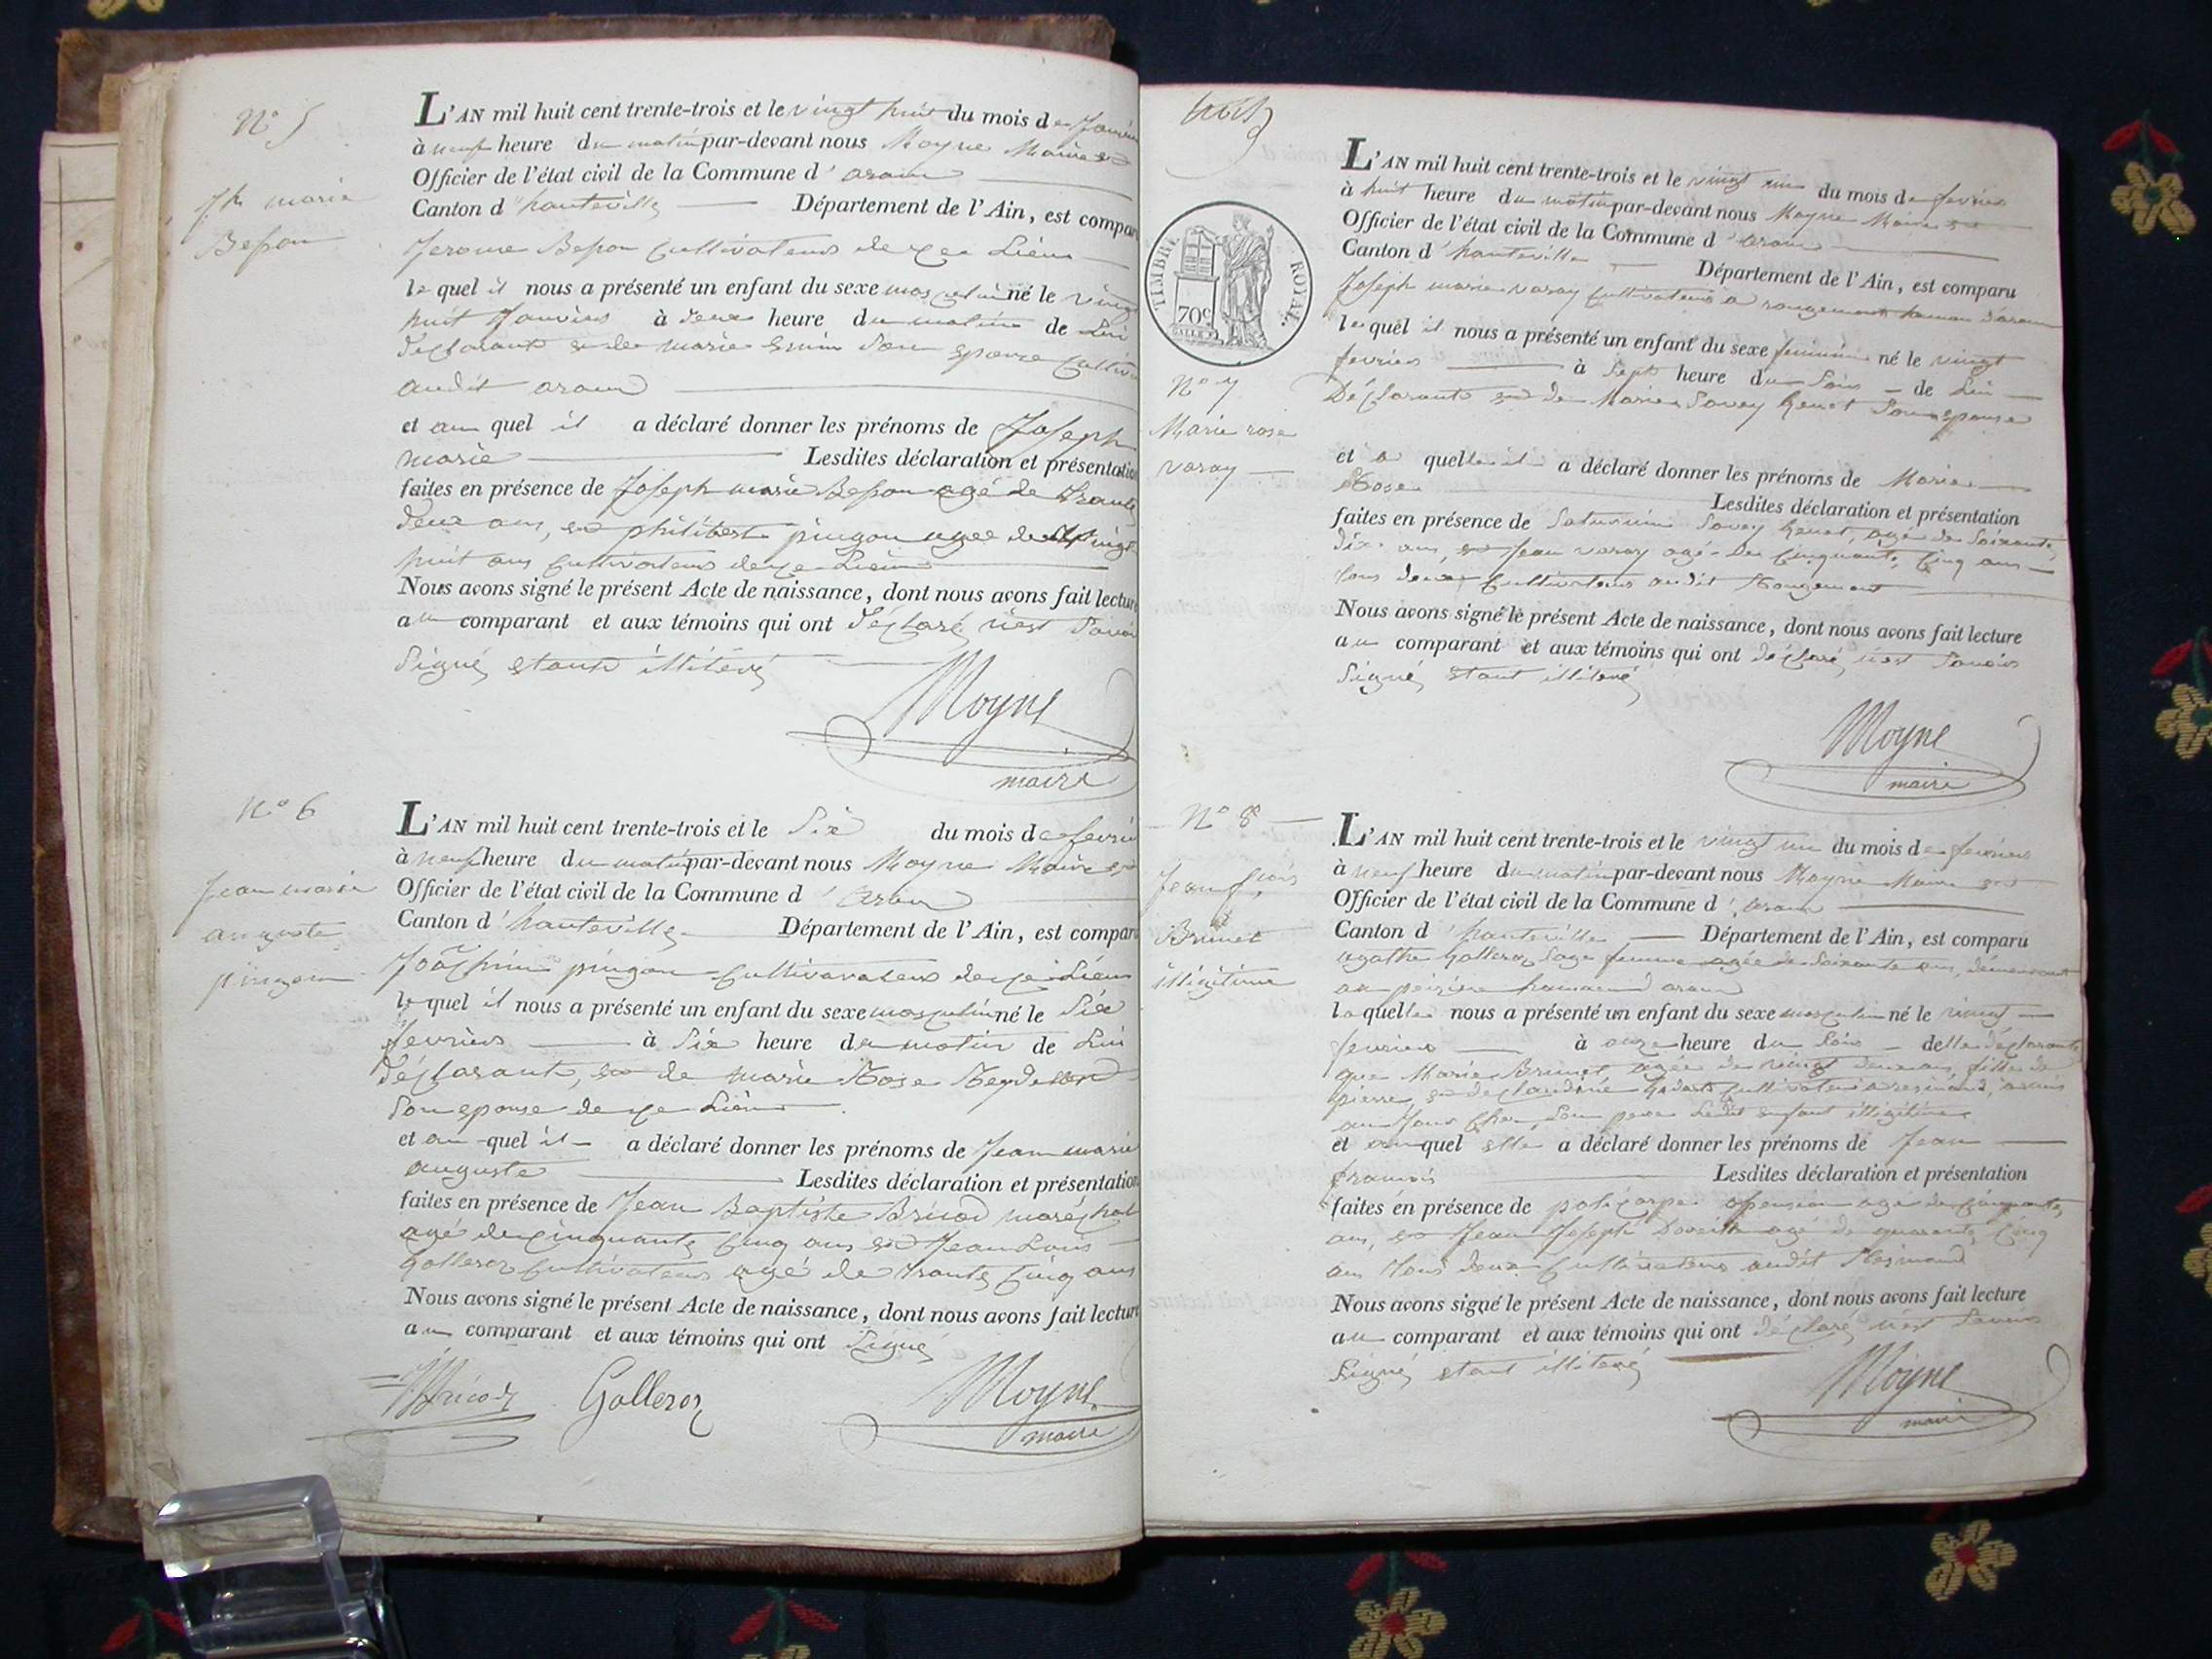 N° 5
Jh marie
Besson
L'AN mil huit cent trente-trois et le vingt huit du mois de Janvier
à neuf heure du matin par-devant nous Moyne Maire et
Officier de l'état civil de la Commune d'aranc
Canton d'hauteville Département de l'Ain, est compar
Jerome Besson Cultivateur de ce Lieu
lequel il nous a présenté un enfant du sexe masculin né le vingt
huit Janvier à deux heure du matin de Lui
déclarant et de marie son epouse
audit aranc
et au quel il a déclaré donner les prénoms de Joseph
marie Lesdites déclaration et présentation
faites en présence de Joseph marie Besson agé de trante
deux ans, et philibert pingon agé de vingt
huit ans Cultivateurs de ce Lieu
Nous avons signé le présent Acte de naissance, dont nous avons fait lecture
au comparant et aux témoins qui ont déclaré n'est Savoir
Signé, etant illiteré
Moyne
maire
N° 6
Jean marie
auguste
pingon
L'AN mil huit cent trente-trois et le Six du mois de fevrier
à neuf heure du matin par-devant nous Moyne Maire et
Officier de l'état civil de la Commune d'Aranc
Canton d'hauteville Département de l'Ain, est compar
Joachim pingon Cultivarateur de ce Lieu
lequel il nous a présenté un enfant du sexe masculin né le Six
fevrier à Six heure du matin de Lui
déclarant, et de marie Rose
Son epouse de ce Lieu
et au quel il a déclaré donner les prénoms de Jean marie
auguste Lesdites déclaration et présentation
faites en présence de Jean Baptiste Bricod maréchal
agé de Cinquante Cinq ans et Jean Louis
Golleroz Cultivateur agé de trante Cinq ans
Nous avons signé le présent Acte de naissance, dont nous avons fait lecture
au comparant et aux témoins qui ont Signé
Bricod Golleroz Moyne
maire
trois
TIMBRE ROYAL
70c
N° 7
Marie rose
varay
L'AN mil huit cent trente-trois et le vingt un du mois de fevrier
à huit heure du matin par-devant nous Moyne Maire et
Officier de l'état civil de la Commune d'aranc
Canton d'hauteville Département de l'Ain, est comparu
Joseph marie varay Cultivateur a rougemont hamau d'aranc
lequel il nous a présenté un enfant du sexe feminin né le vingt
fevrier à Sept heure du Soir de Lui
Déclarant et de Marie Savey Son epouse
et a quelle il a déclaré donner les prénoms de Marie
Rose Lesdites déclaration et présentation
faites en présence de Saturnin Savey agé de Soixante
dix ans, et Jean varay agé de Cinquante Cinq ans
tous deux Cultivateurs audit Rougemont
Nous avons signé le présent Acte de naissance, dont nous avons fait lecture
au comparant et aux témoins qui ont déclaré n'est Savoir
Signé, etant illiteré
Moyne
maire
N° 8
Jean fçois
Brunet
illigitime
L'AN mil huit cent trente-trois et le vingt un du mois de fevrier
à neuf heure du matin par-devant nous Moyne Maire et
Officier de l'état civil de la Commune d'aranc
Canton d'hauteville Département de l'Ain, est comparu
agathe Golleroz Sage femme agée de Soixante ans, demeurant
lequelle nous a présenté un enfant du sexe masculin né le vingt
fevrier à onze heure du Soir delle déclarante
que Marie Brunet agée de vingt deux ans, fille de
pierre, et de claudine Cultivateur a resinand, a mis
au Jour Chez Son pere Ledit enfant illigitime
et auquel elle a déclaré donner les prénoms de Jean
francois Lesdites déclaration et présentation
faites en présence de policarpe agé de Cinquante
ans, et Jean Joseph agé de quarante Cinq
ans tous deux Cultivateurs audit Resinand
Nous avons signé le présent Acte de naissance, dont nous avons fait lecture
au comparant et aux témoins qui ont déclaré n'est Savoir
Signé, etant illiteré
Moyne
maire